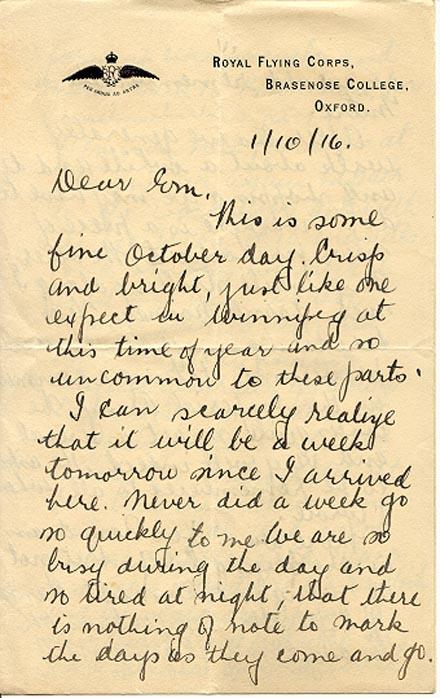 ROYAL FLYING CORPS,
BRASENOSE COLLEGE,
OXFORD.
PER ARDUA AD ASTRA
1/10/16.
Dear Em,
This is some
fine October day. Crisp
and bright, just like one
expect in Winnipeg at
this time of year and so
uncommon to these parts.
I can scarcely realize
that it will be a week
tomorrow since I arrived
here. Never did a week go
so quickly to me We are so
busy during the day and
so tired at night, that there
is nothing of note to mark
the days as they come and go.